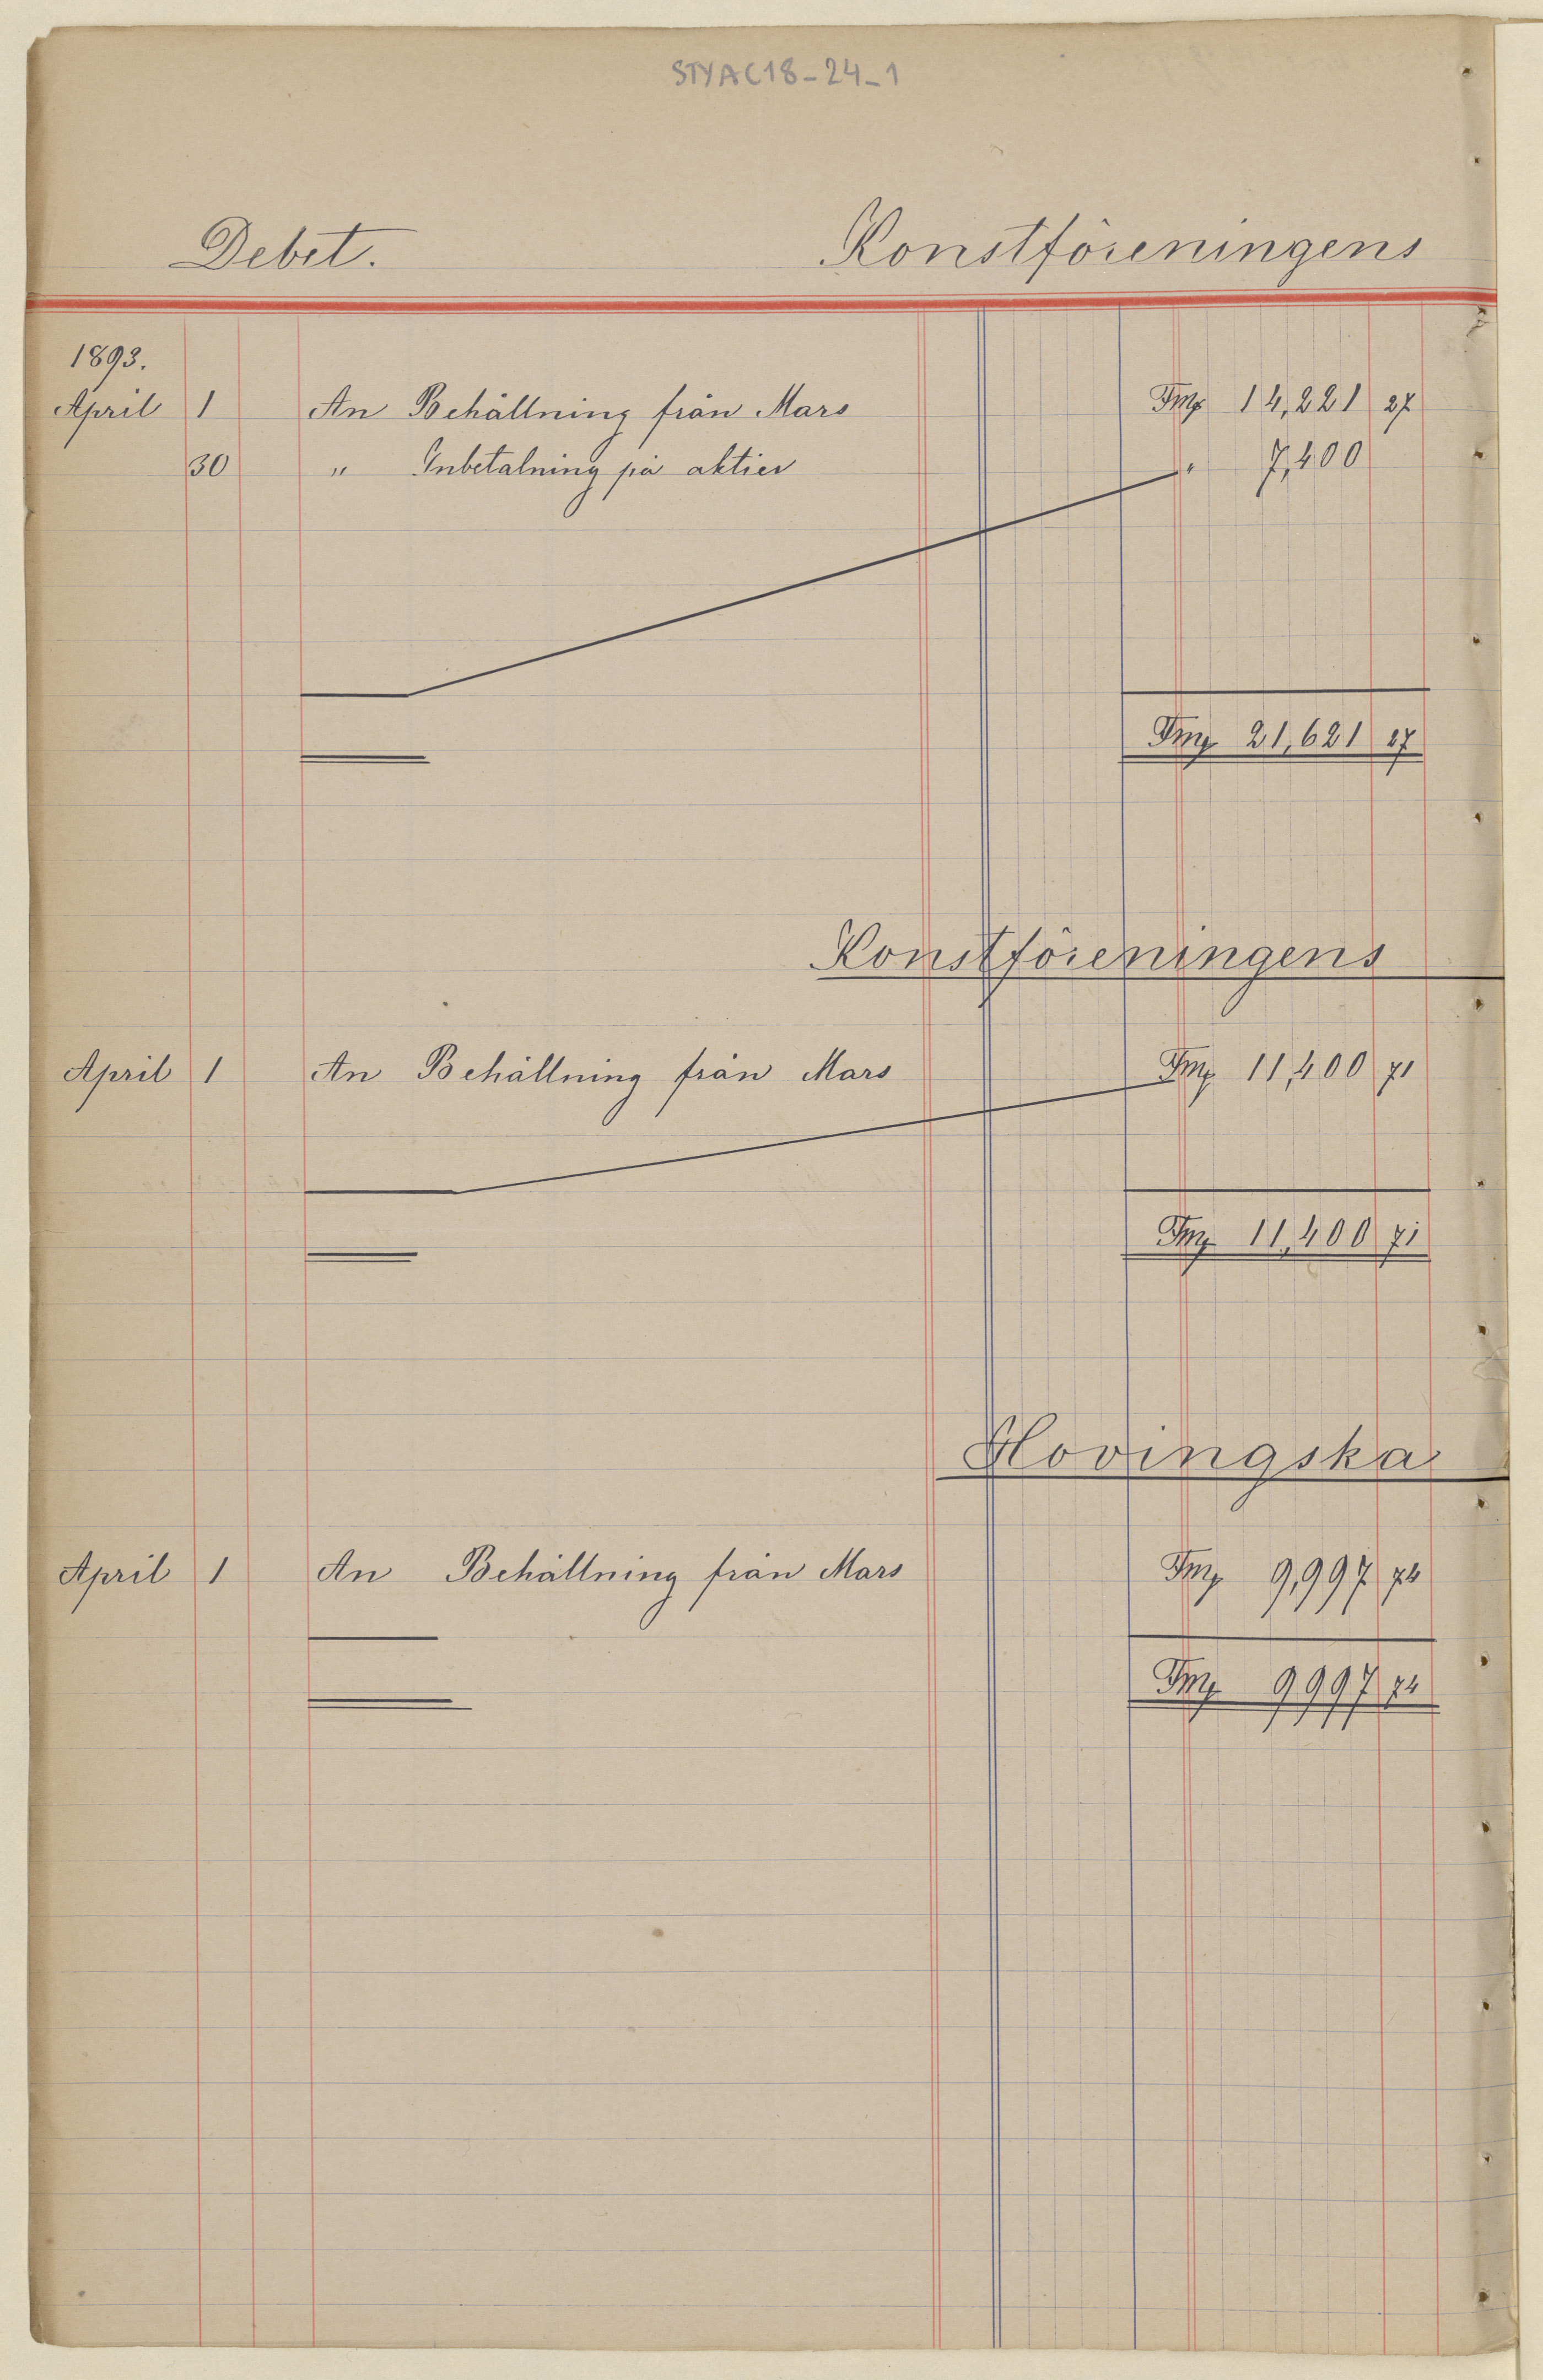 STYAC18-24-1
Debet. Konstföreningens
1893.
April 1 An Behållning från Mars Fmg 14,221 27
30 " Inbetalning på aktier " 7,400
Fmg 21,621 27
Konstföreningens
April 1 An Behållning från Mars Fmg 11,400 71
Fmg 11,400 71
Hovingska
April 1 An Behållning från Mars Fmg 9,997 74
Fmg 9997 74